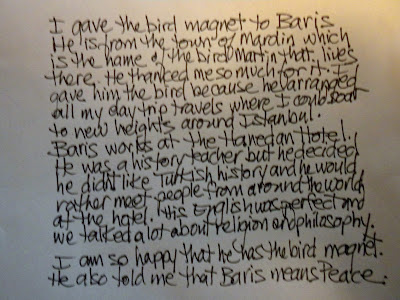 I gave the bird magnet to Baris
He is from the town of Mardin which
is the name of the bird Martin that lives
there. He thanced me so much for it. I
gave him the bird because he arranged
all my day trip travels where I could soar
to new heights around Istanbul.
Baris works at the Hanedan Hotel.
He was a history teacher but he decided
he didnt like Turkish history and he would
rather meet people from around the world
at the hotel. His English was perfect and
we talked a lot about religion and philosophy.
I am so happy that he has the bird magnet.
He also told me that Baris means Peace.